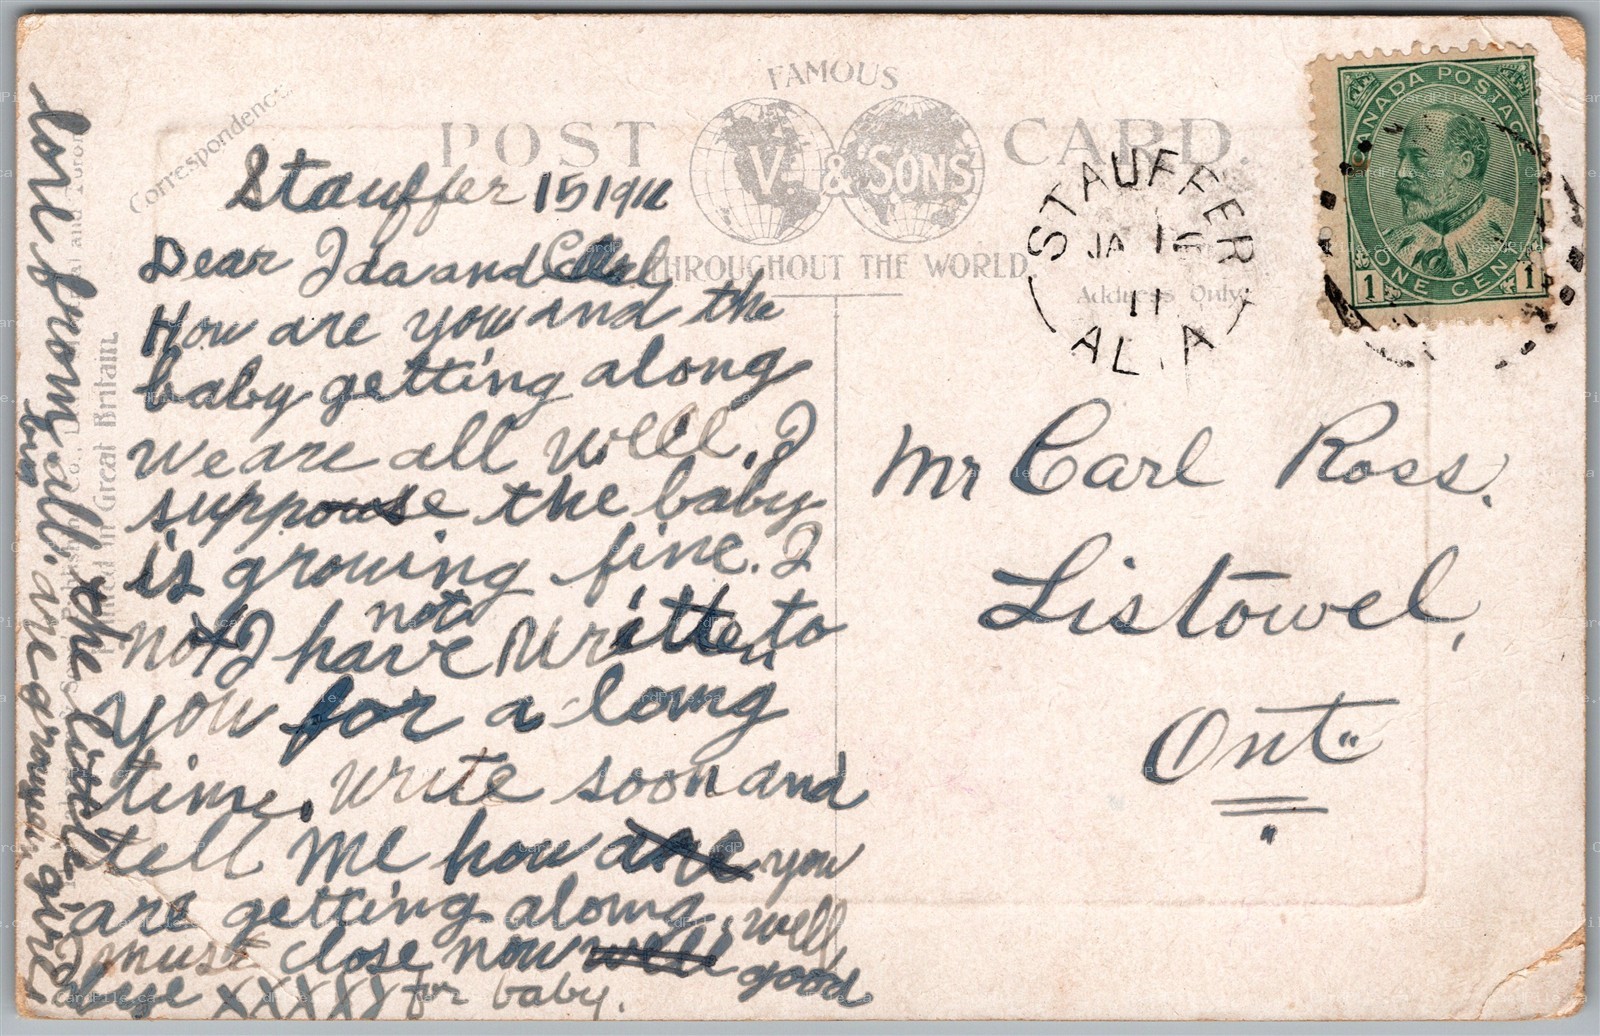 Correspondence.
FAMOUS
POST CARD.
& SONS
THROUGHOUT THE WORLD
Address Only
STAUFFER
JA 16
11
ALTA
CANADA POSTAGE
1 ONE CENT 1
Stauffer 15 1911
Dear Ida and Carl
How are you and the
baby getting along
we are all well. I
suppose the baby
is growing fine. I
not I have not written to
you for a long
time. Write soon and
tell me how are you
are getting along, well,
must close now well good
bye XXXXX for baby.
Mr Carl Ross.
Listowel,
Ont"
Printed in Great Britain.